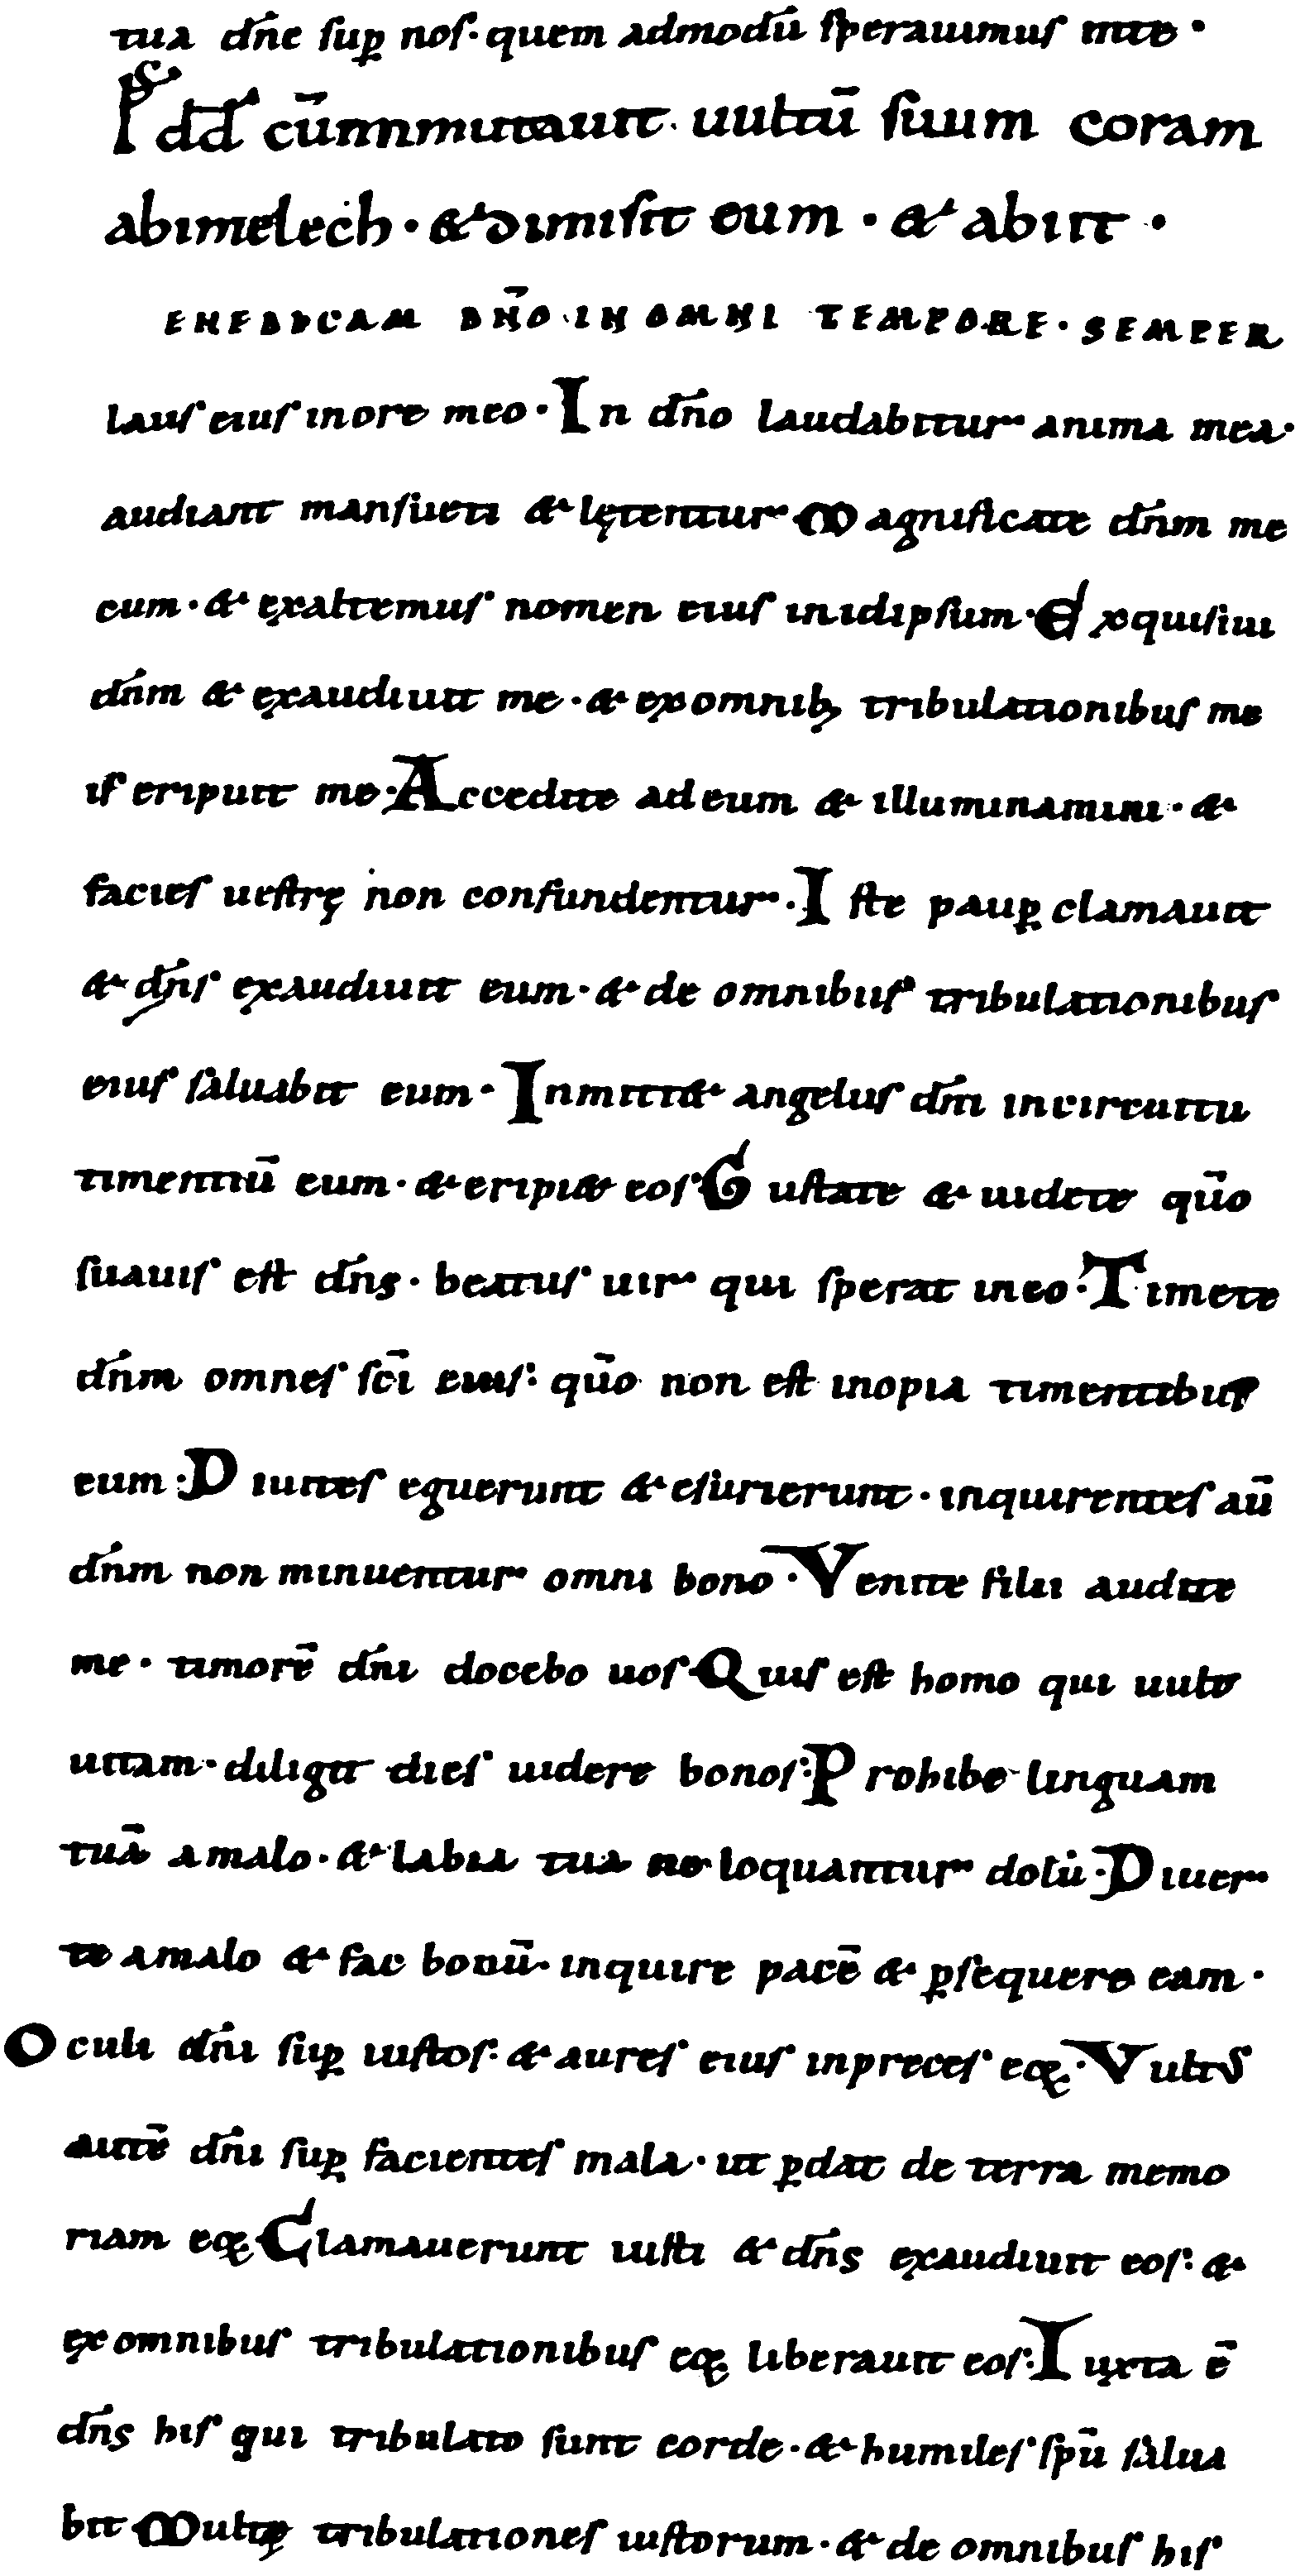 tua dñe sup̱ nos · quem admodū sperauimus inte ·
Ps dd cūinmutauit · uultū suum coram
abimelech · & dimisit eum · & abiit ·
ENEDICAM DÑO · IN OMNI TEMPORE · SEMPER
laus eius inore meo · In dño laudabitur anima mea ·
audiant mansueti & lętentur Magnificate dñm me
cum · & exaltemus nomen eius inidipsum · Exquisiui
dñm & exaudiuit me · & exomnib; tribulationibus me
is eripuit me · Accedite adeum & illuminamini · &
facies uestrę non confundentur · Iste paup̱ clamauit
& dñs exaudiuit eum · & de omnibus tribulationibus
eius saluabit eum · Inmitt& angelus dñi incircuitu
timentiū eum · & eripi& eos Gustate & uidete quō
suauis est dñs · beatus uir qui sperat ineo · Timete
dñm omnes scī eius · quō non est inopia timentibus
eum · Diuites eguerunt & esurierunt · inquirentes aū
dñm non minuentur omni bono · Venite filii audite
me · timorē dñi docebo uos Quis est homo qui uult
uitam · diligit dies uidere bonos · Prohibe linguam
tuā amalo · & labia tua ne loquantur dolū · Diuer
te amalo & fac bonū · inquire pacē & p̱sequere eam ·
Oculi dñi sup̱ iustos · & aures eius inpreces eoꝝ · Vultus
autē dñi sup̱ facientes mala · ut p̱dat de terra memo
riam eoꝝ Clamauerunt iusti & dñs exaudiuit eos · &
exomnibus tribulationibus eoꝝ liberauit eos · Iuxta ē
dñs his qui tribulato sunt corde · & humiles spū salua
bit Multę tribulationes iustorum · & de omnibus his